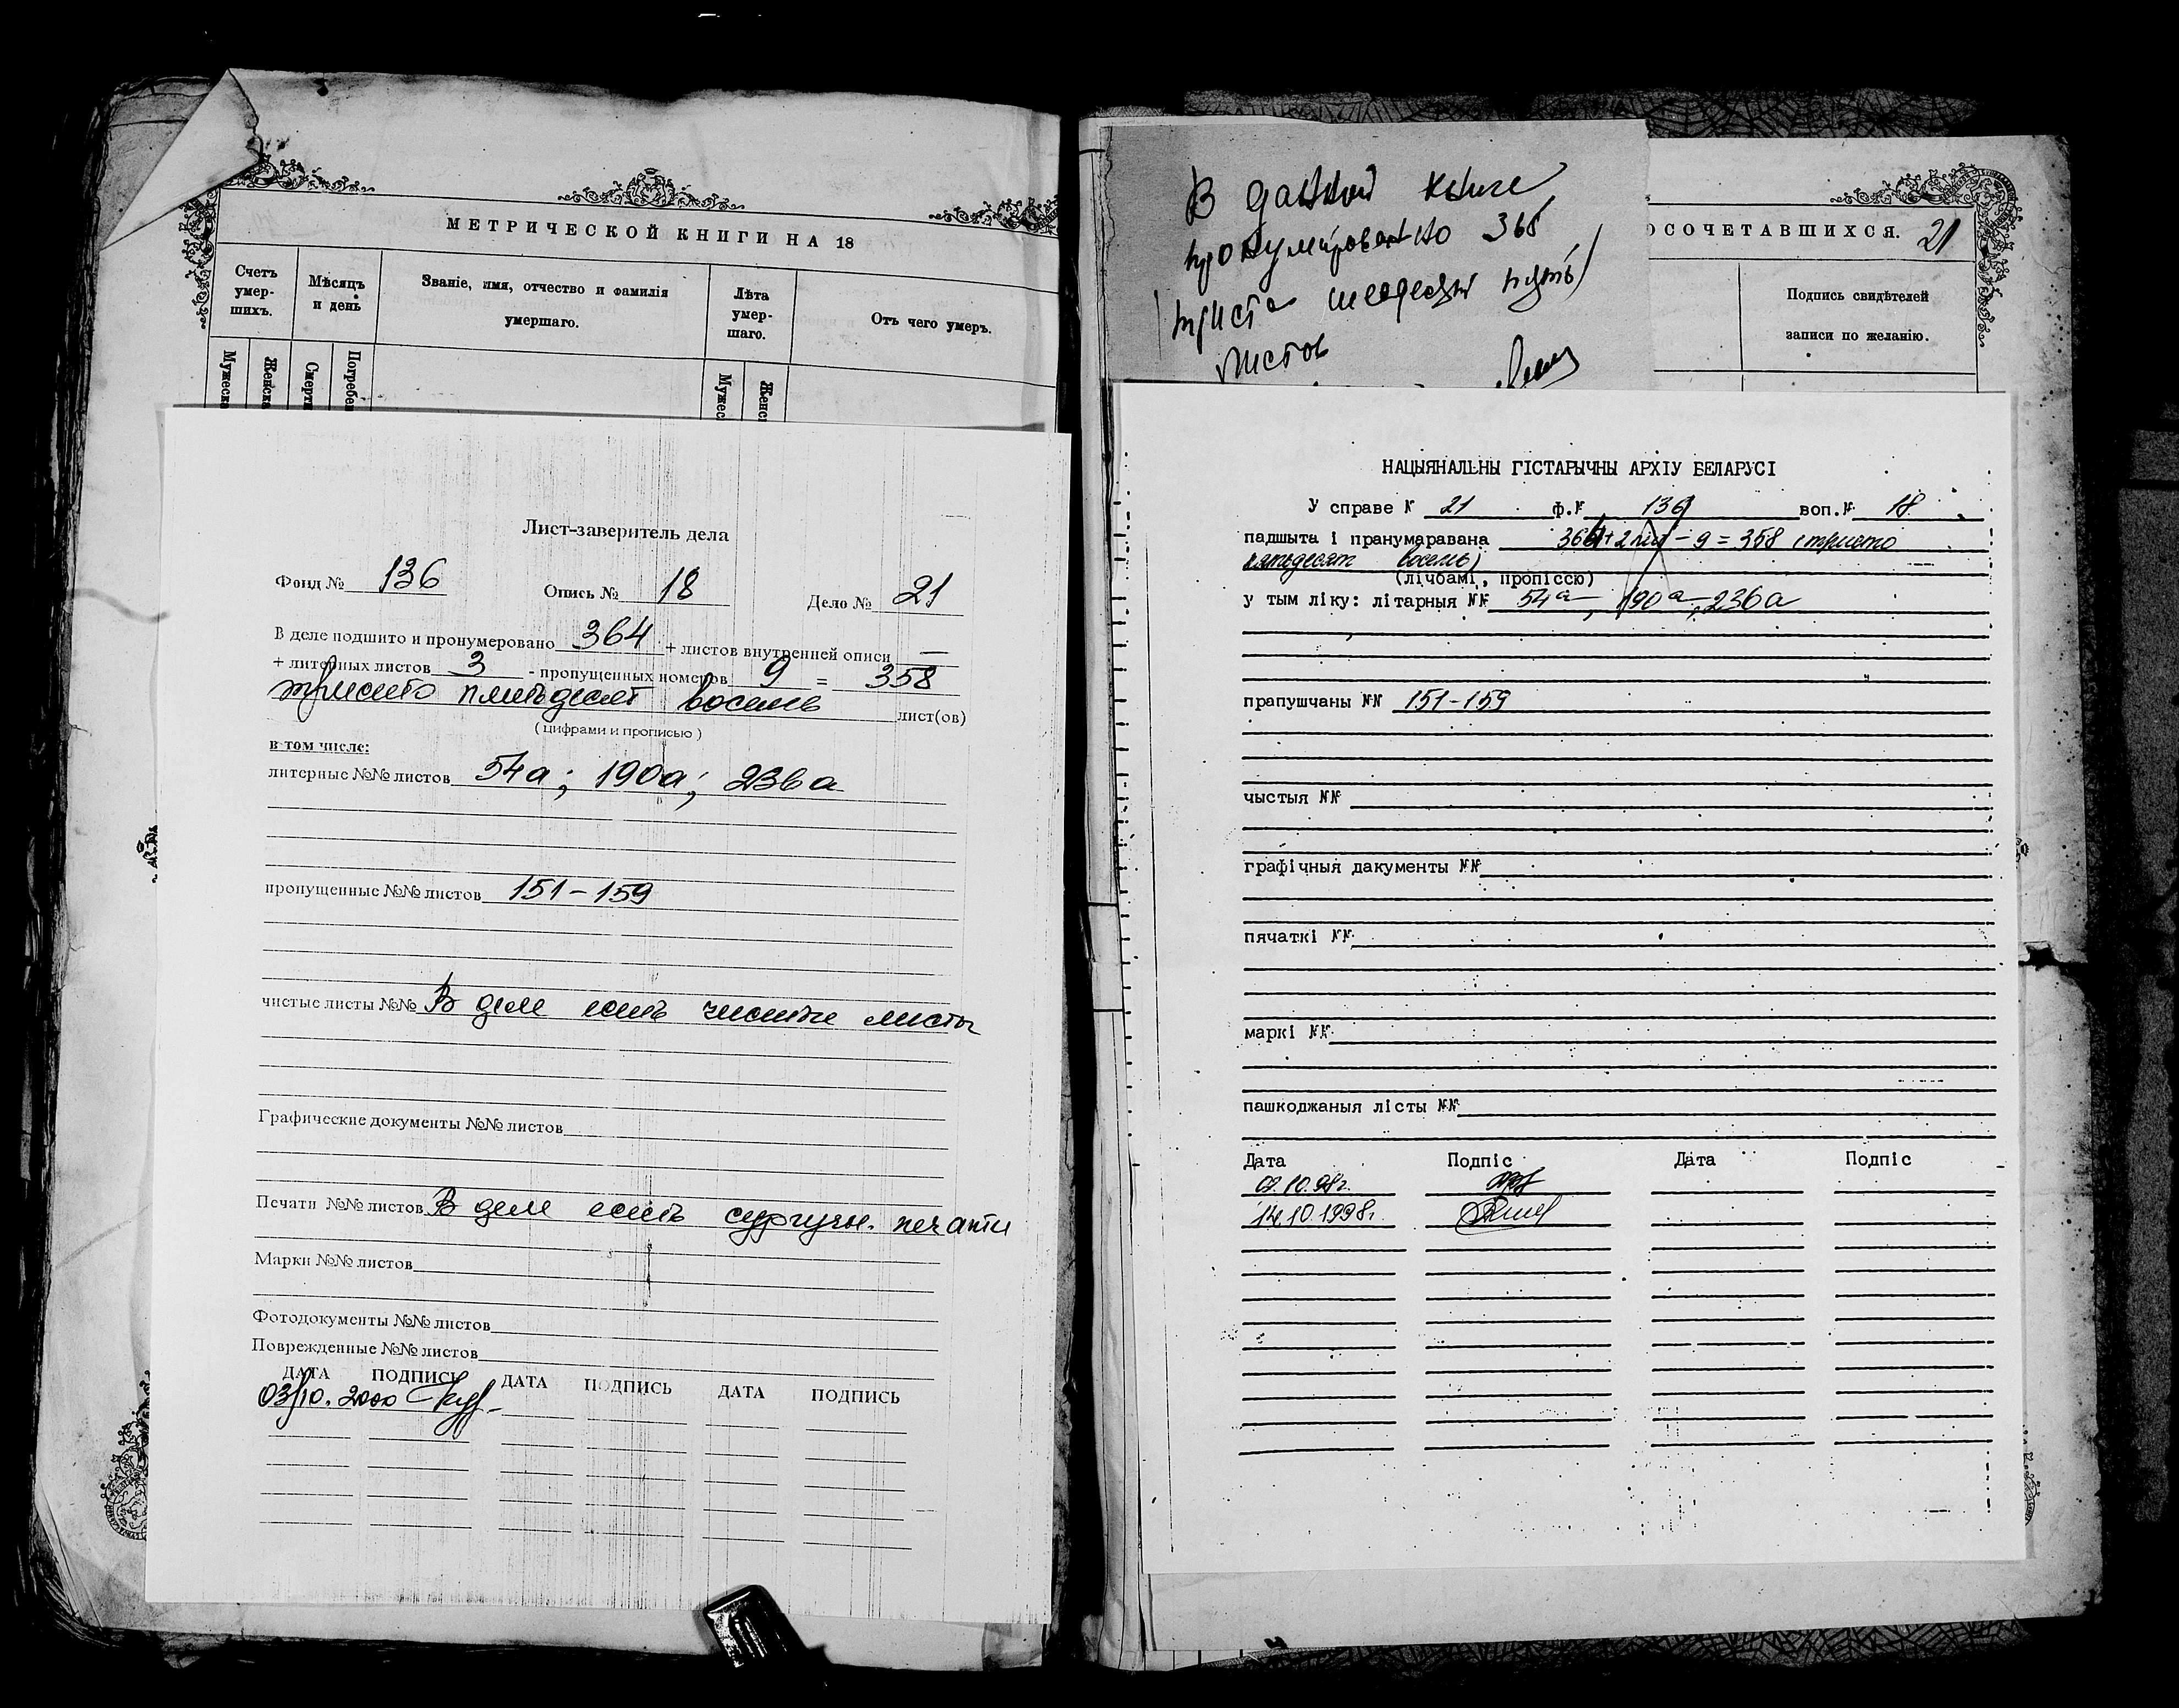 МЕТРИЧЕСКОЙ КНИГИ НА 18
Счетъ умер-шихъ.
Мѣсяцъ и день
Званіе, имя, отчество и фамилія умершаго.
Лѣта умер-шаго.
Отъ чего умеръ.
Мужеска
Женска
Смерти
Погребен
Мужес
Женск
Лист-заверитель дела
Фонд № 136 Опись № 18 Дело № 21
В деле подшито и пронумеровано 364 + листов внутренней описи —
+ литерных листов 3 - пропущенных номеров 9 = 358
триста пятьдесят восемь лист(ов)
(цифрами и прописью)
в том числе:
литерные №№ листов 54а; 190а; 236а
пропущенные №№ листов 151-159
чистые листы №№ В деле есть чистые листы
Графические документы №№ листов
Печати №№ листов В деле есть сургучн. печати
Марки №№ листов
Фотодокументы №№ листов
Поврежденные №№ листов
ДАТА ПОДПИСЬ ДАТА ПОДПИСЬ ДАТА ПОДПИСЬ
03/10.2000
В данной книге
пронумеровано 365
(триста шестьдесят пять)
листов
ОСОЧЕТАВШИХСЯ. 21
Подпись свидѣтелей
записи по желанію.
НАЦЫЯНАЛЬНЫ ГІСТАРЫЧНЫ АРХІУ БЕЛАРУСІ
У справе № 21 ф.№ 136 воп.№ 18
падшыта і пранумаравана 364 + 2 лит - 9 = 358 (триста
пятьдесят восемь)
(лічбамі, пропіссю)
у тым ліку: літарныя №№ 54а, 190а, 236а
прапушчаны №№ 151-159
чыстыя №№
графічныя дакументы №№
пячаткі №№
маркі №№
пашкоджаныя лісты №№
Дата Подпіс Дата Подпіс
02.10.98г.
14.10.1998г.